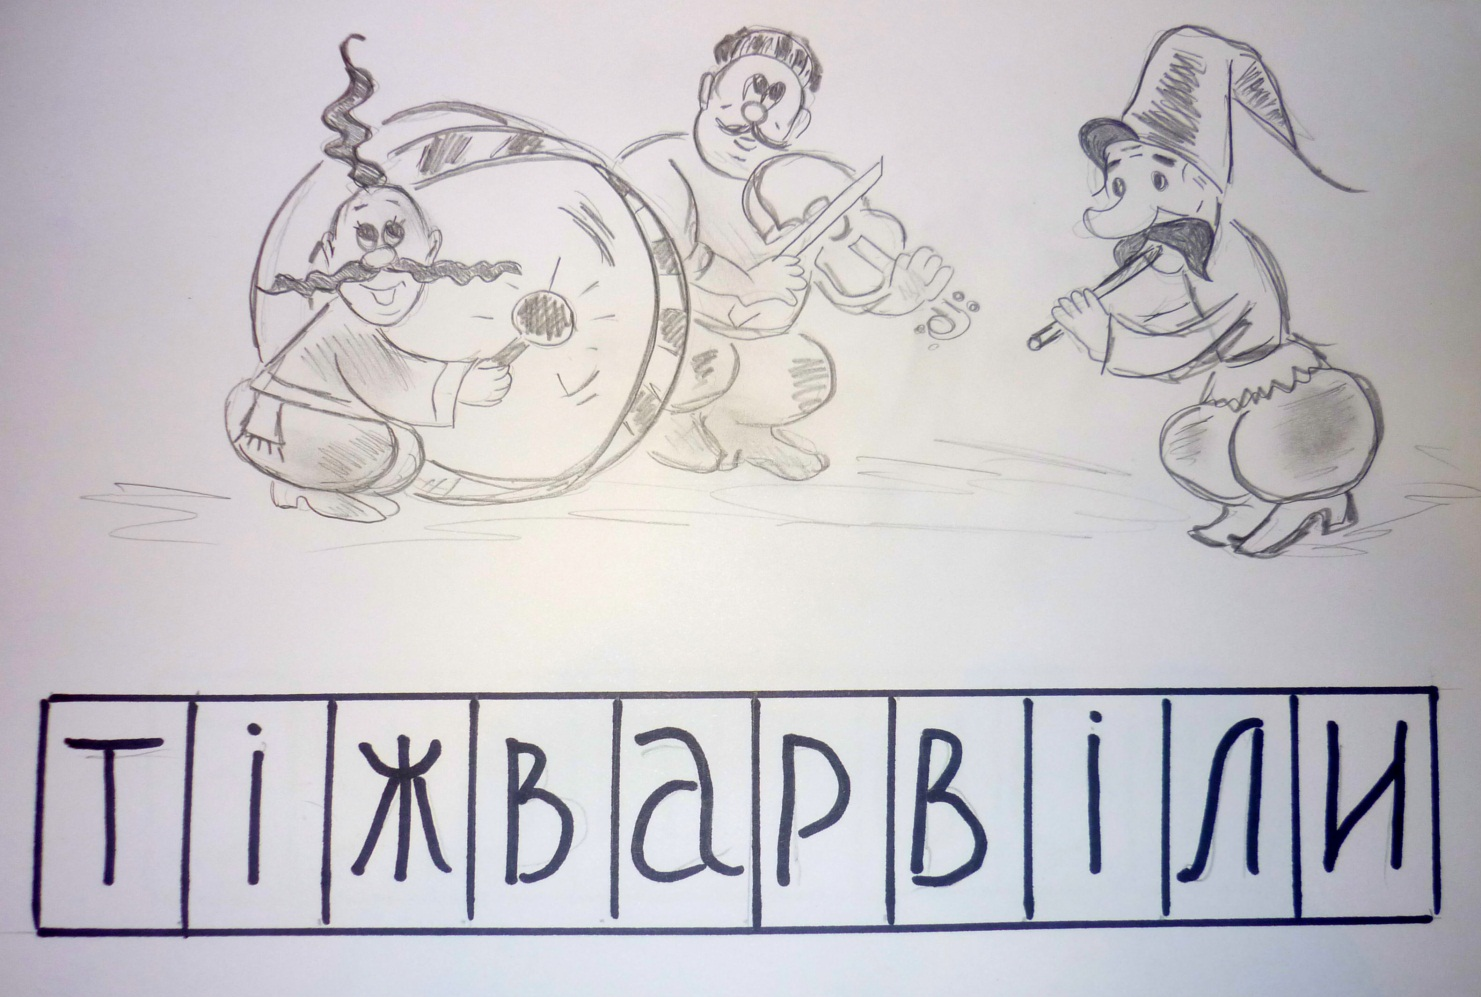 тіжварвіли